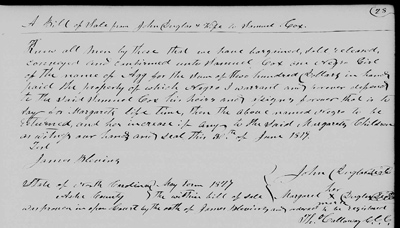 (28
A Bill of Sale from John Quyler & Wife to Samuel Cox.
Know all Men by these that we have bargained, sold released,
conveyed and confirmed unto Samuel Cox one Negro Girl
of the name of Agg for the sum of three hundred Dollars in hand
paid the property of which Negro I warrant and forever defend
to the said Samuel Cox his heirs and assigns forever that is to
say in Margarets life time, then the above named negro to be
returned, and her increase if any to the said Margarets Children
as witness our hands and seal this of June 1817.
Test
James Blevins
John
her
State of North Carolina May Term 1817
Margaret X
Ashe County The within bill of sale
mark
was proven in open Court by the oath of James Blevins and ordered to be registered
Tho Calloway C.C.C.